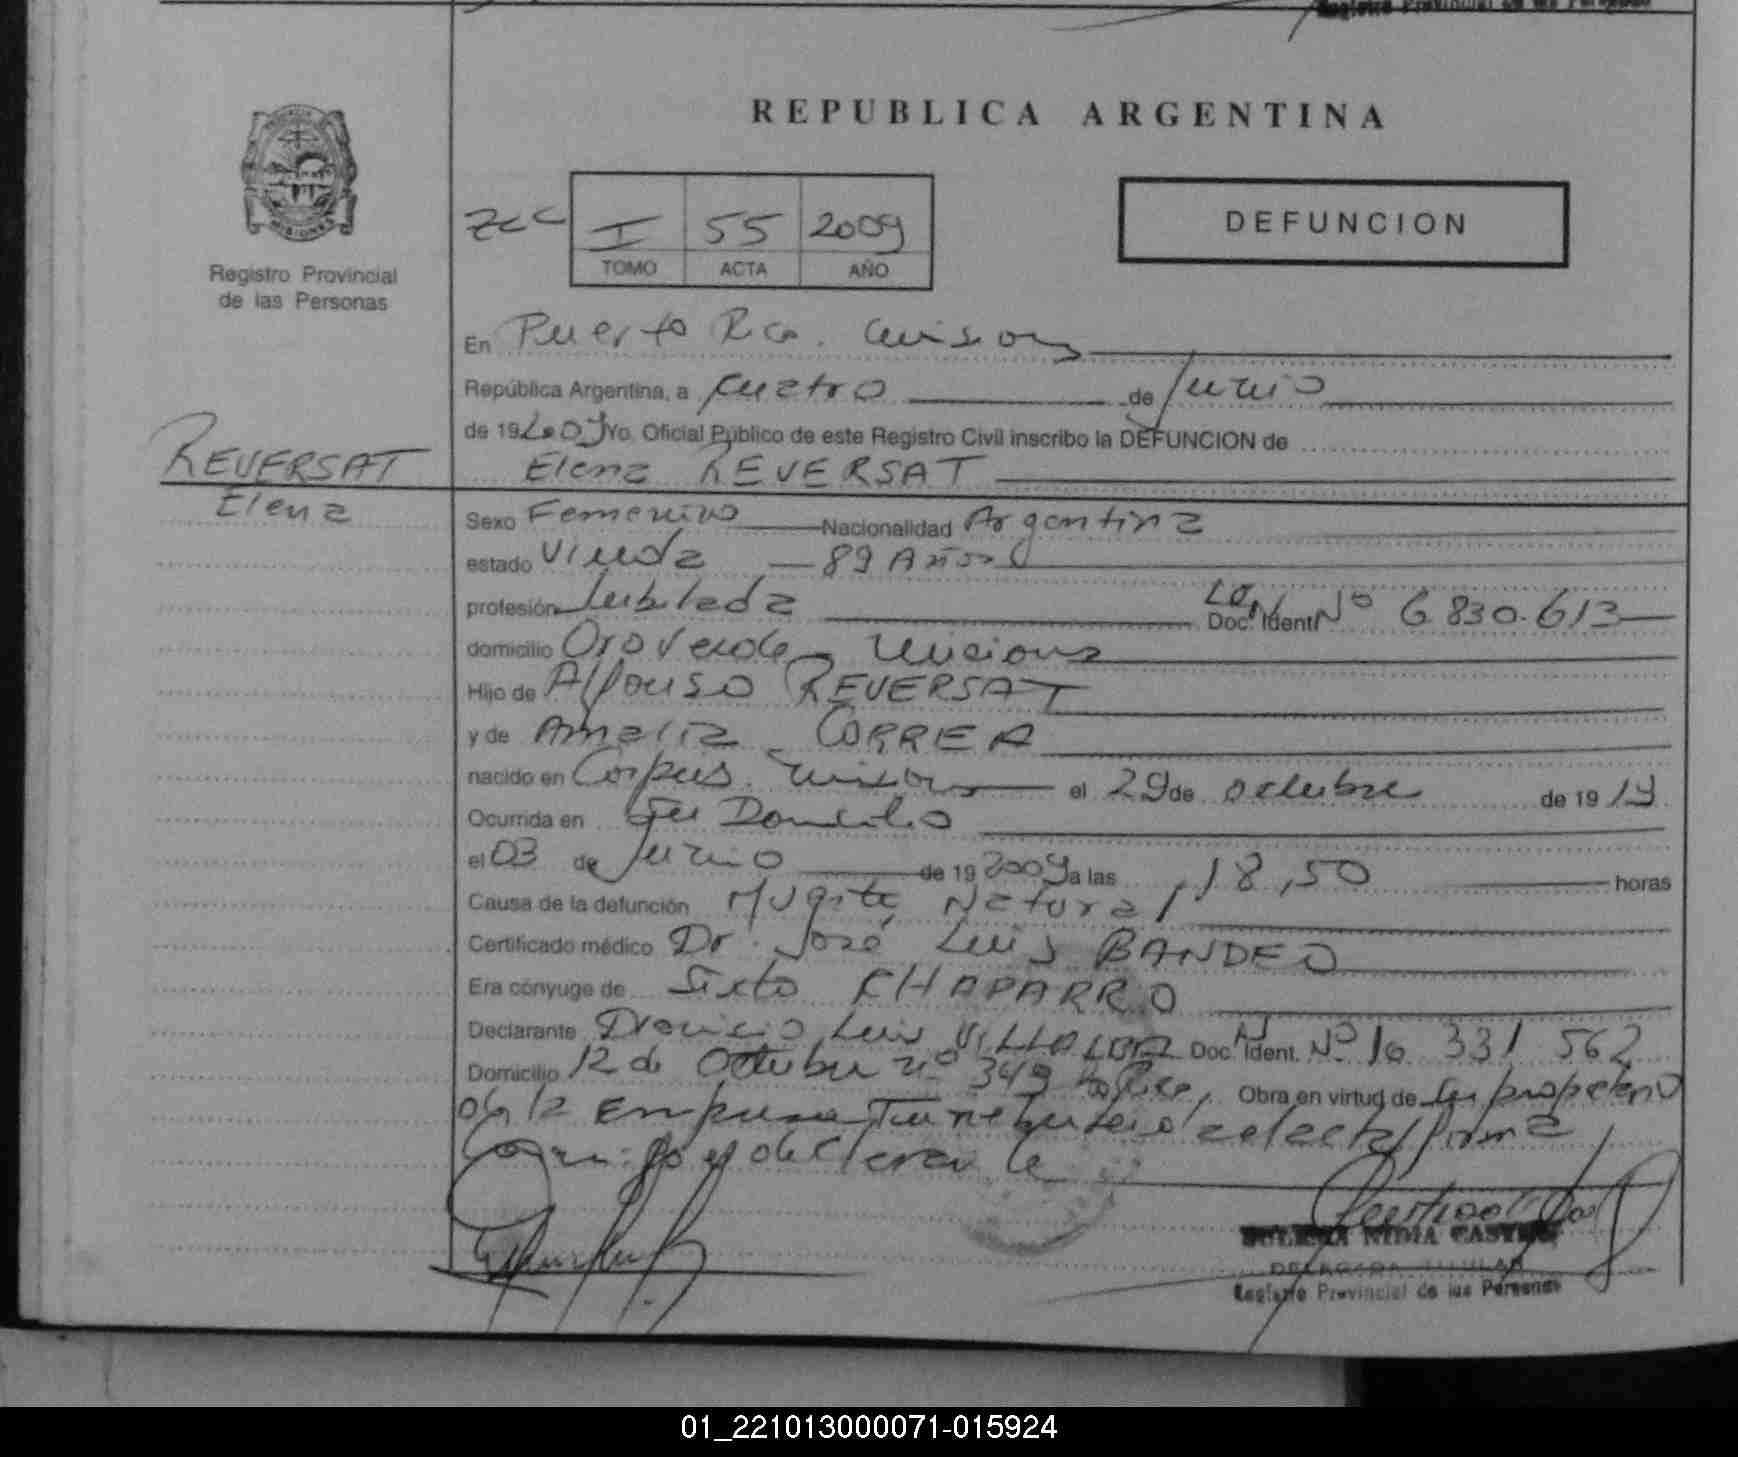 Registro Provincial de las Personas
REPUBLICA ARGENTINA
DEFUNCION
MISIONES
Registro Provincial
de las Personas
I 55 2009
TOMO ACTA AÑO
En Puerto Rico. Misiones
República Argentina, a cuatro de Junio
de 19 2009 Yo, Oficial Público de este Registro Civil inscribo la DEFUNCION de
REVERSAT
Elena REVERSAT
Elena
Sexo Femenino Nacionalidad Argentina
estado Viuda 89 Años
profesión Jubilada Doc. Ident. Nº 6 830.613
domicilio Oro Verde Misiones
Hijo de Alfonso REVERSAT
y de Amalia CORREA
nacido en Corpus. Misiones el 29 de octubre de 19 19
Ocurrida en Su Domicilio
el 03 de Junio de 19 2009 a las 18,50 horas
Causa de la defunción Muerte Natural
Certificado médico Dr. José Luis BANDEO
Era cónyuge de Sixto CHAPARRO
Declarante Dionicio Luis VILLALBA Doc. Ident. Nº 16 331 562
Domicilio 12 de Octubre nº 349 Obra en virtud de ser propietario
de la Empresa
Conmigo el declarante
NIDIA
DELEGADA TITULAR
Registro Provincial de las Personas
01_221013000071-015924